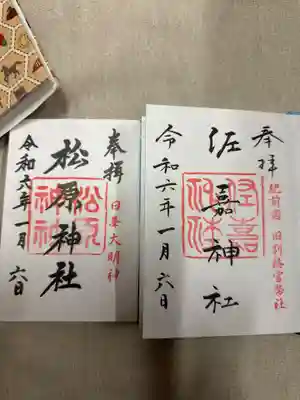 奉拝
肥前国 旧別格官幣社
佐嘉神社
令和六年一月六日
奉拝
日峯大明神
松原神社
令和六年一月六日